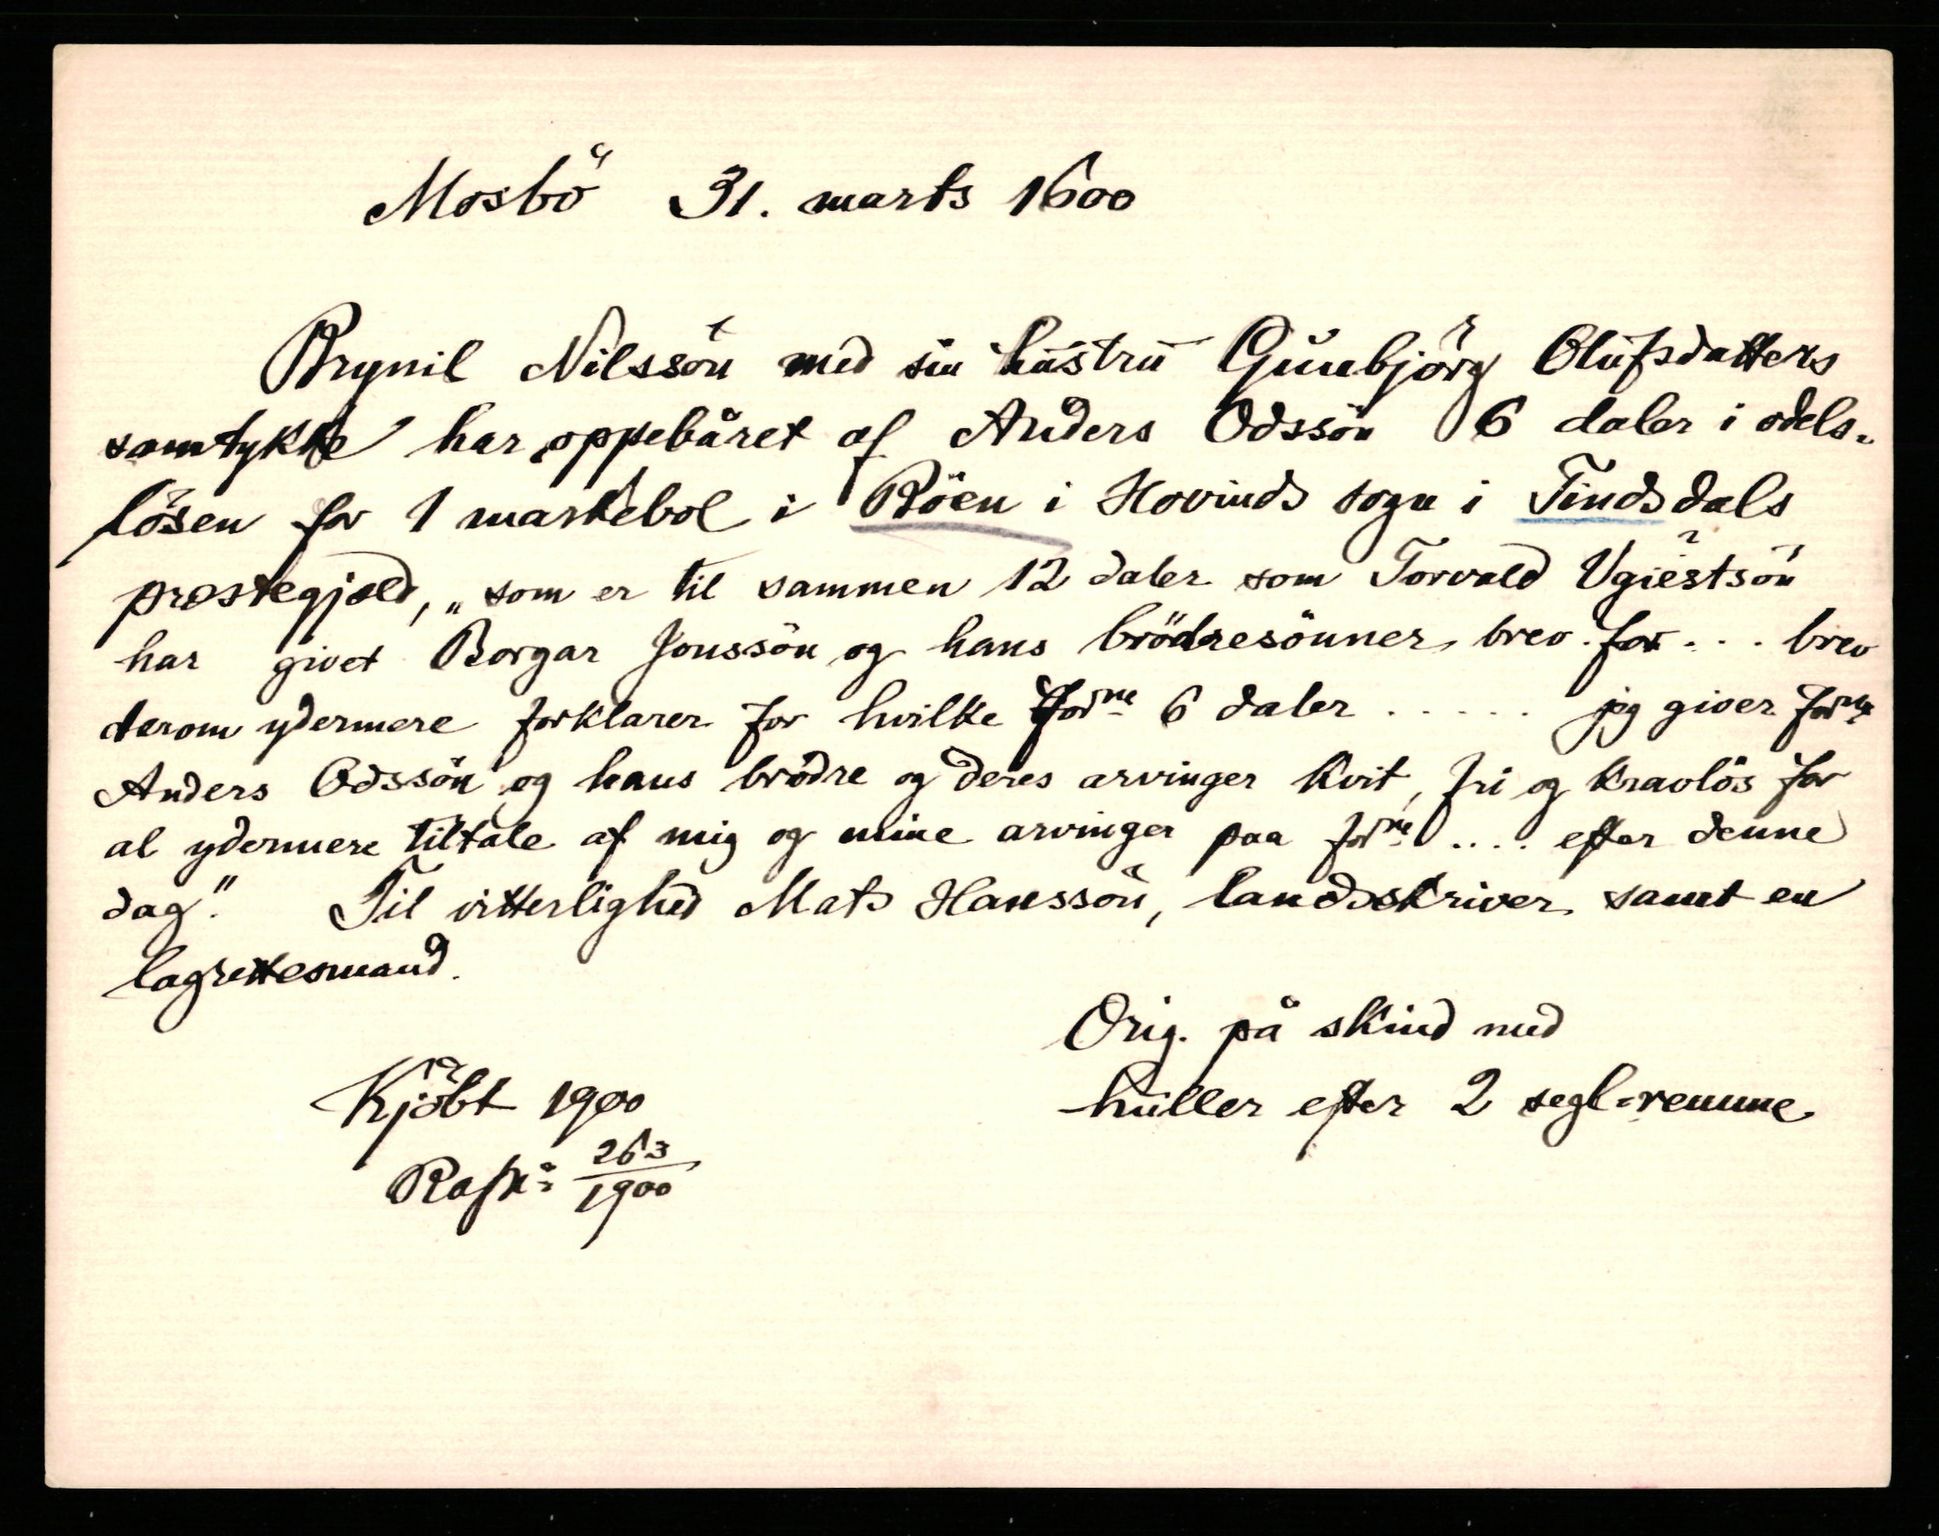 Mosbö 31. marts 1600
Brynil Nilssön med sin hustru Gunbjörg Olufsdatters
samtykke har oppebåret af Anders Odssön 6 daler i odels-
lösen for 1 markebol i Böen i Hovinds sogn i Tindsdals
prestegjæld, „som er til sammen 12 daler som Torvald Vgiestsön
har givet Borgar Jonssön og hans brödresönner brev for... brev
derom ydermere forklarer for hvilke forne 6 daler ..... jeg giver forne
Anders Odssön og hans brödre og deres arvinger kvit, fri og kravlös for
al ydermere tiltale af mig og mine arvinger paa forne .... efter denne
dag." Til vitterlighed Mats Hanssön, landsskriver samt en
lagrettesmand.
Orig. på skind med
huller efter 2 segl-remme
Kjöbt 1900
263
1900